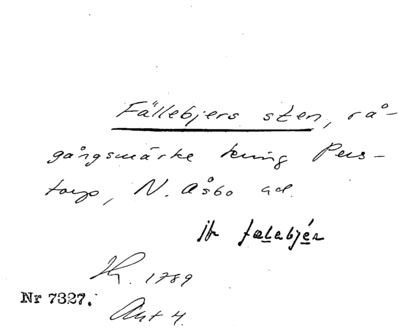 Fällebjers sten, rå-
gångsmärke kring Pers-
torp, N. Åsbo hd.
jfr fælebjér
Kr. 1789
Nr 7327.
Akt 4.